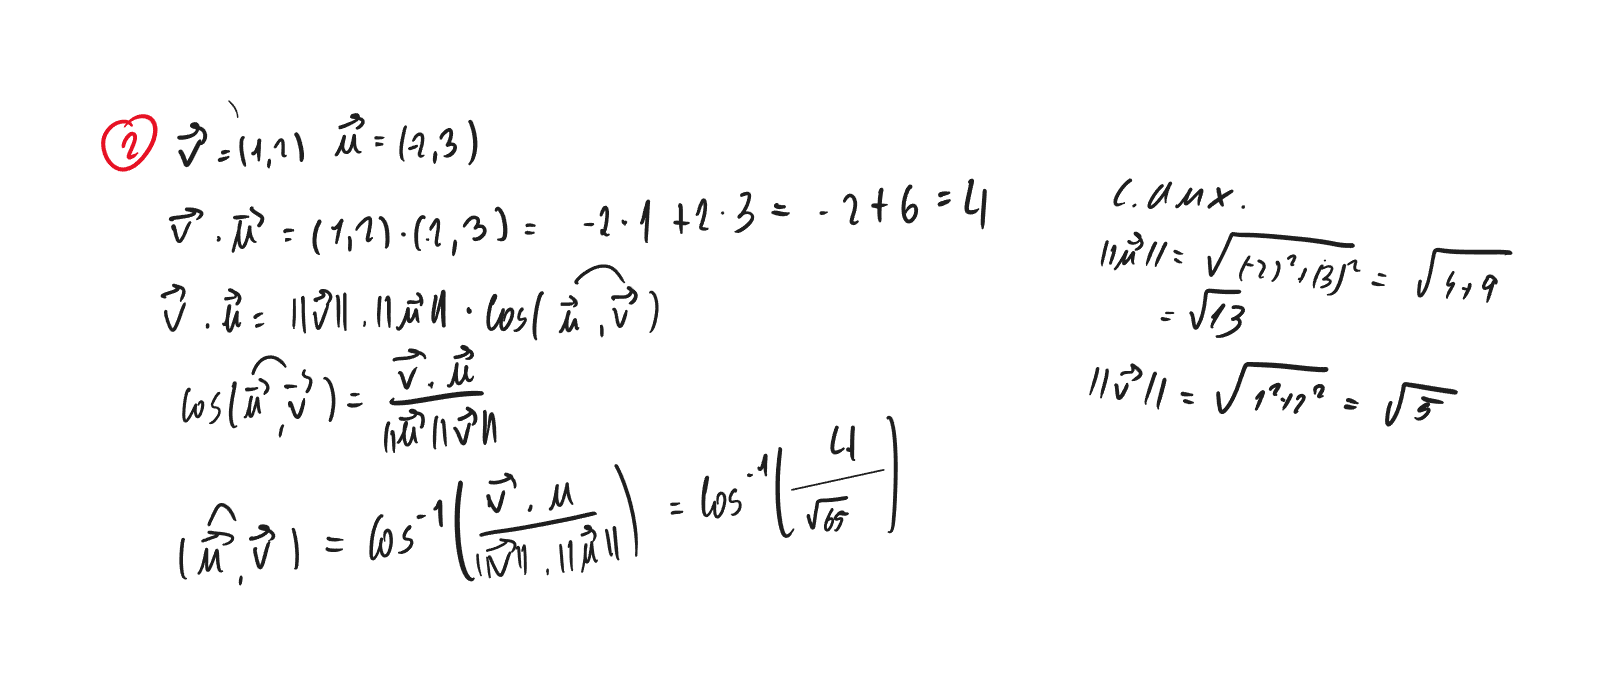 2 v⃗ = (1,2) u⃗ = (-2,3)
v⃗ . u⃗ = (1,2) · (-2,3) = -2·1 + 2·3 = -2+6 = 4
v⃗ . u⃗ = ||v⃗|| . ||u⃗|| · cos(u⃗,v⃗)
cos(u⃗,v⃗) = v⃗ . u⃗ / ||u⃗|| ||v⃗||
(u⃗,v⃗) = cos⁻¹(v⃗ . u / ||v⃗|| . ||u⃗||) = cos⁻¹(4/√65)
C. aux.
||u⃗|| = √(-2)²+(3)² = √4+9
= √13
||v⃗|| = √1²+2² = √5